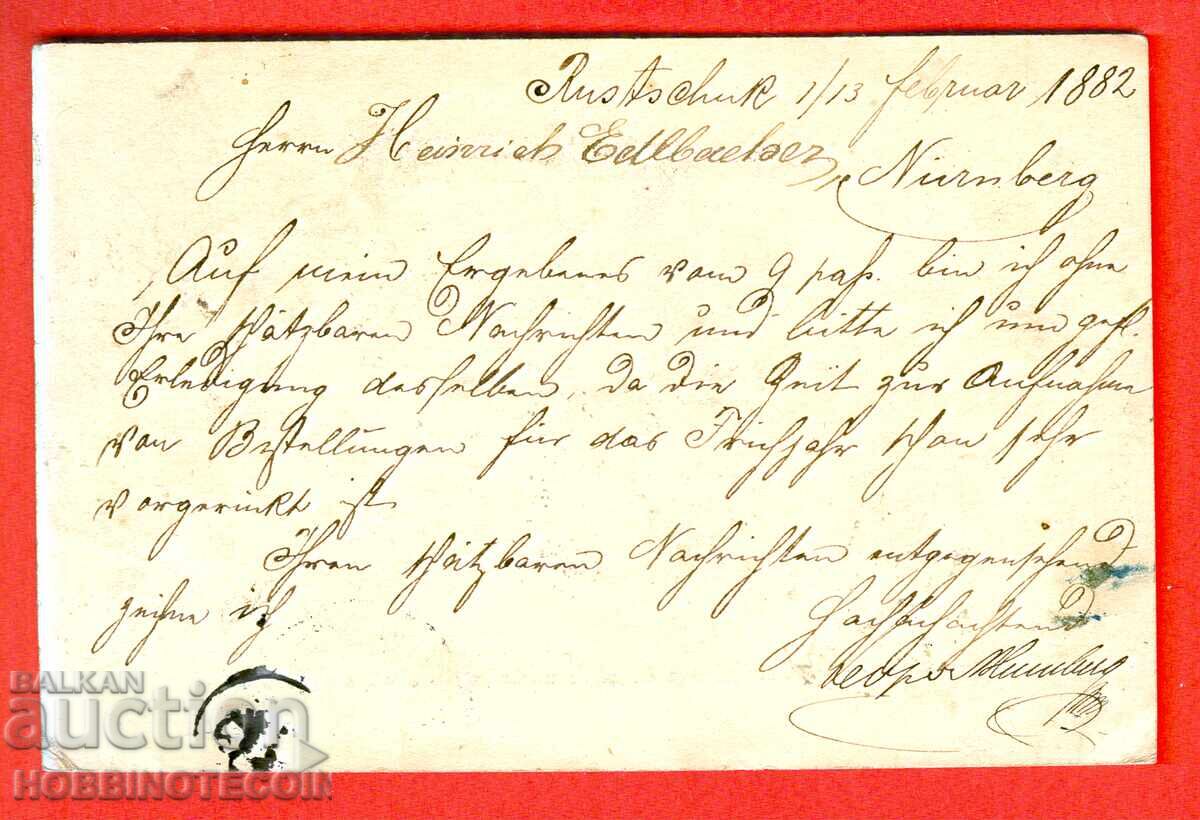 Rustschuk 1/13 februar 1882
Herrn Heinrich Edlbacher,
Nürnberg
Auf mein Ergebenes vom 9 paß. bin ich ohne
Ihre schätzbaren Nachrichten und bitte ich um gefl.
Erledigung desselben, da die Zeit zur Aufnahme
von Bestellungen für das Frühjahr schon sehr
vorgerückt ist
Ihren schätzbaren Nachrichten entgegensehend
zeichne ich
Hochachtend
BALKAN
auction
HOBBINOTECOIN